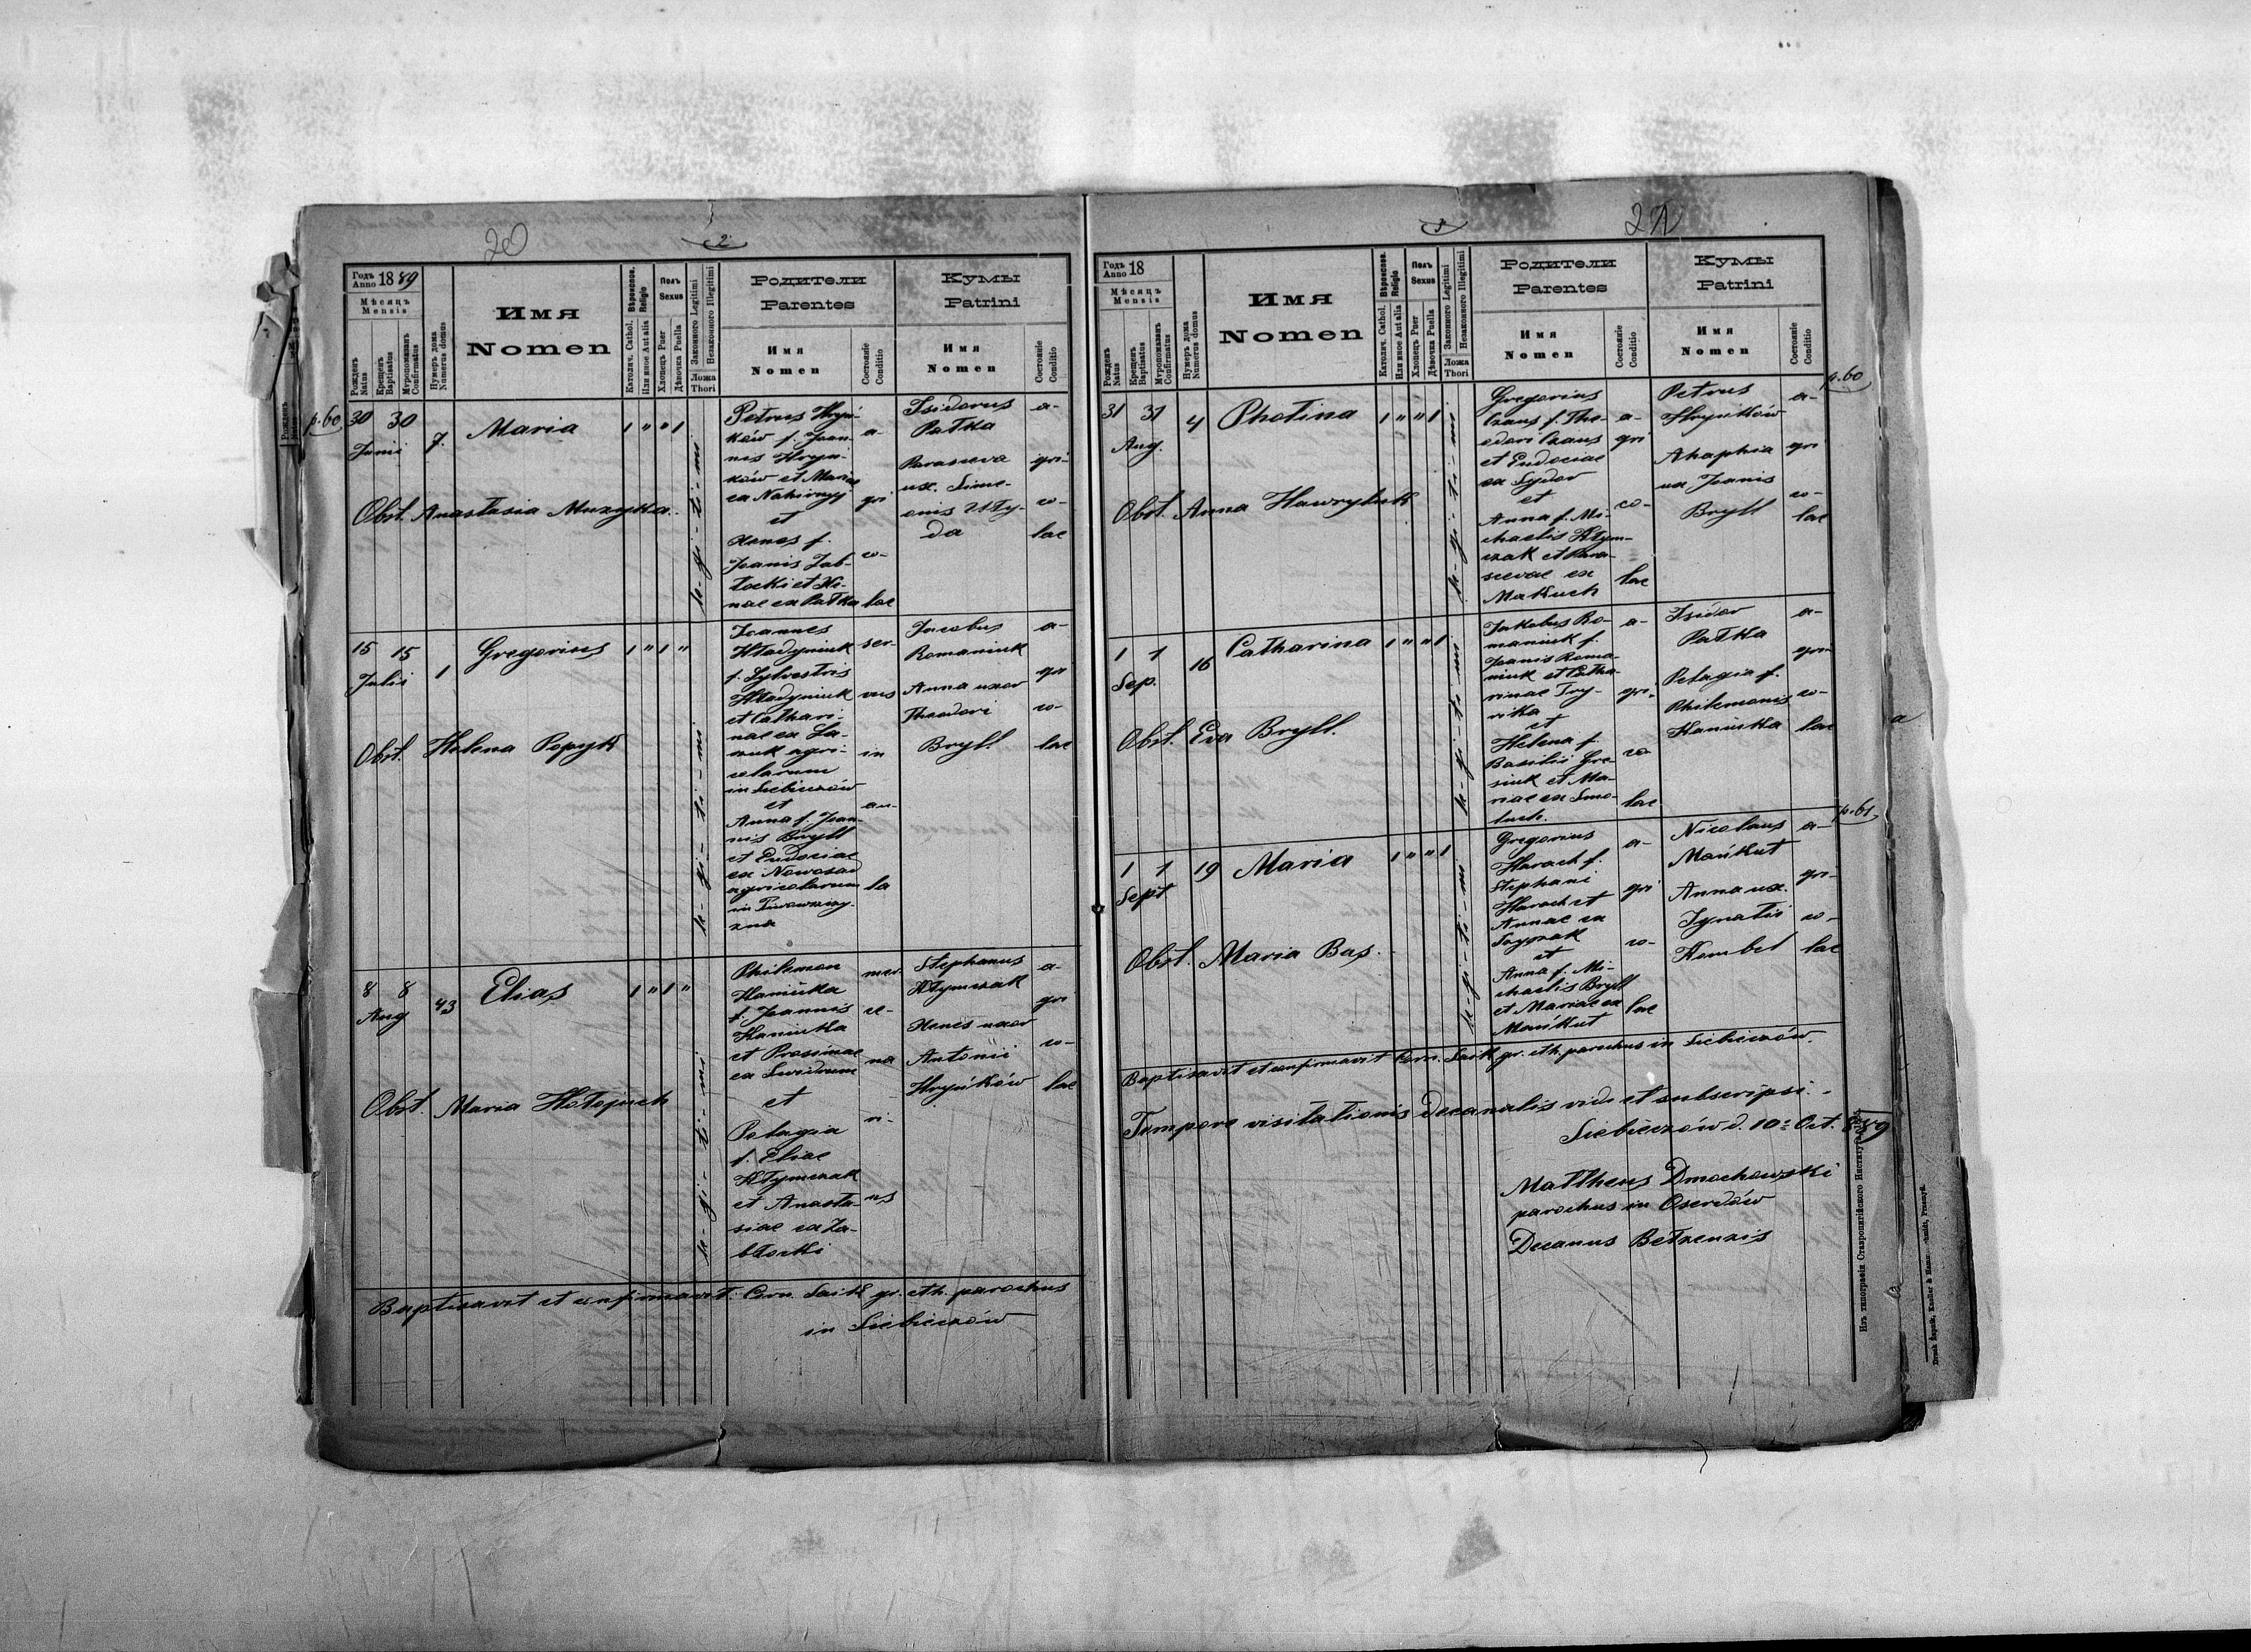 20
2
Годъ
Anno 1889
Мѣсяцъ
Mensis
Рожденъ
Natus
Крещенъ
Baptisatus
Муропомазанъ
Confirmatus
Нумеръ дома
Numerus domus
Имя
Nomen
Вѣроиспов.
Religio
Католич. Cathol.
Или иное Aut alia
Полъ
Sexus
Хлопецъ Puer
Дѣвочка Puella
Законного Legitimi
Незаконного Illegitimi
Ложа
Thori
Родители
Parentes
Имя
Nomen
Состояніе
Conditio
Кумы
Patrini
Имя
Nomen
Состояніе
Conditio
p. 60
30 30 7. Maria 1 " " 1
Junii
Obst. Anastasia Muzyka
le-gi-ti-mi
Petrus Hryń-
ków f. Joan-
nis Hryń-
ków et Mariae
ex Nahirnyj
et
Xenes f.
Joanis Jab-
łocki et Xe-
nae ex Patka
a-
gri
co-
lae
Isidorus
Patka
Parasceva
ux. Sime-
onis
da
a-
gri-
co-
lae
15 15 1 Gregorius 1 " 1 "
Julii
Obst. Helena Popyk
le-gi-ti-mi
Joannes
Hładyniuk
f. Sylvestris
Hładyniuk
et Cathari-
nae ex
agri-
colarum
in Siebieczów
et
Anna f. Joan-
nis Bryll
et Eudociae
ex Nowosad
agricolarum
in
zna
ser-
vus
in
au-
la
Jacobus
Romaniuk
Anna uxor
Theodori
Bryll
a-
gri
co-
lae
8 8 43 Elias 1 " 1 "
Aug
Obst. Maria Hołojuch
le-gi-ti-mi
Philemon
Haniuka
f. Joannis
Haniuka
et
ex
et
Pelagia
f. Eliae
Kłymczak
et Anasta-
siae ex Za-
błocki
mer-
ce-
na
ri-
us
Stephanus
Kłymczak
Xenes uxor
Antonii
Hryńków
a-
gri
co-
lae
Baptisavit et confirmavit Corn. Saik gr. cth. parochus
in Siebieczów
3
21
Годъ
Anno 18
Мѣсяцъ
Mensis
Рожденъ
Natus
Крещенъ
Baptisatus
Муропомазанъ
Confirmatus
Нумеръ дома
Numerus domus
Имя
Nomen
Вѣроиспов.
Religio
Католич. Cathol.
Или иное Aut alia
Полъ
Sexus
Хлопецъ Puer
Дѣвочка Puella
Законного Legitimi
Незаконного Illegitimi
Ложа
Thori
Родители
Parentes
Имя
Nomen
Состояніе
Conditio
Кумы
Patrini
Имя
Nomen
Состояніе
Conditio
p. 60
31 31 4 Photina 1 " " 1
Aug.
Obst. Anna Hawryluk
le-gi-ti-mi
Gregorius
Czaus f. The-
odori Czaus
et Eudociae
ex Sydor
et
Anna f. Mi-
chaelis Kłym-
czak et Para-
scevae ex
Makuch
a-
gri
co-
lae
Petrus
Hryńków
Ahaphia
ux. Joanis
Bryll
a-
gri
co-
lae
1 1 16 Catharina 1 " " 1
Sep.
Obst. Eva Bryll.
le-gi-ti-mi
Jakobus Ro-
maniuk f.
Joanis Roma-
niuk et Catha-
rinae
et
Helena f.
Basilii Gre-
siuk et Ma-
riae ex Smo-
luch.
a-
gri-
co-
lae
Isidor
Patka
Pelagia f.
Philemonis
Haniuka
a-
gri-
co-
lae
p. 61
1 1 19 Maria 1 " " 1
Sept
Obst. Maria Bas.
le-gi-ti-mi
Gregorius
Harach f.
Stephani
Harach et
Annae ex
et
Anna f. Mi-
chaelis Bryll
et Mariae ex
Mańkut
a-
gri
co-
lae
Nicolaus
Mańkut
Anna ux.
Ignatii
Kombel
a-
gri-
co-
lae
Baptisavit et confirmavit Corn. Saik gr. cth. parochus in Siebieczów.
Tempore visitationis decanalis vidi et subscripsi.
Siebieczów d. 10 Oct. 889
Mattheus Dmochowski
parochus in Oserdów
Decanus Bełzensis
Изъ типографіи Ставропигійского Института